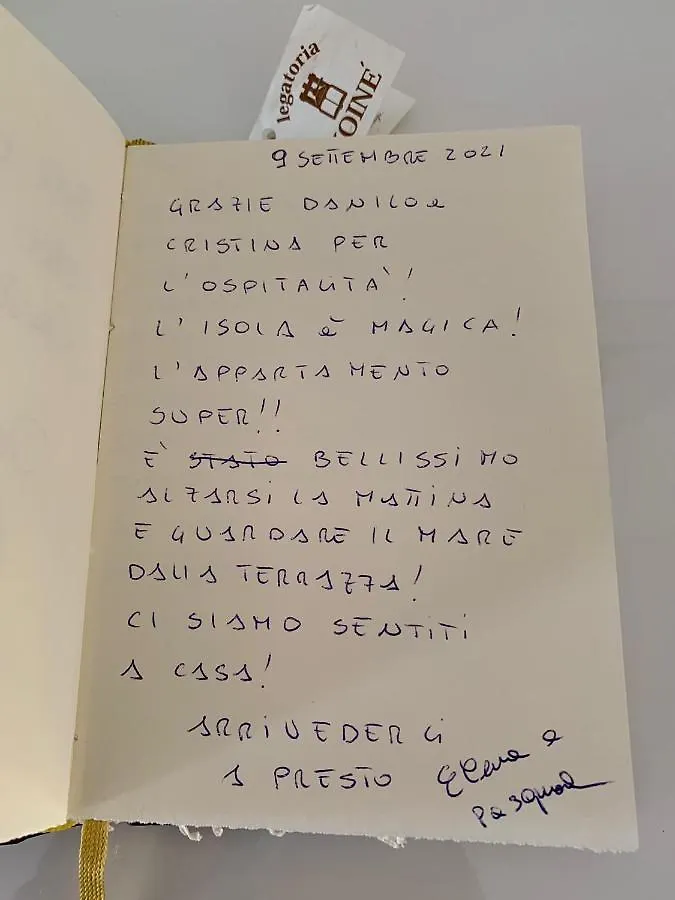 legatoria
OINÉ
9 SETTEMBRE 2021
GRAZIE DANILO e
CRISTINA PER
L'OSPITALITÀ!
L'ISOLA è MAGICA!
L'APPARTAMENTO
SUPER!!
E' STATO BELLISSIMO
ALZARSI LA MATTINA
E GUARDARE IL MARE
DALLA TERRAZZA!
CI SIAMO SENTITI
A CASA!
ARRIVEDERCI
A PRESTO Elena e
Pasquale